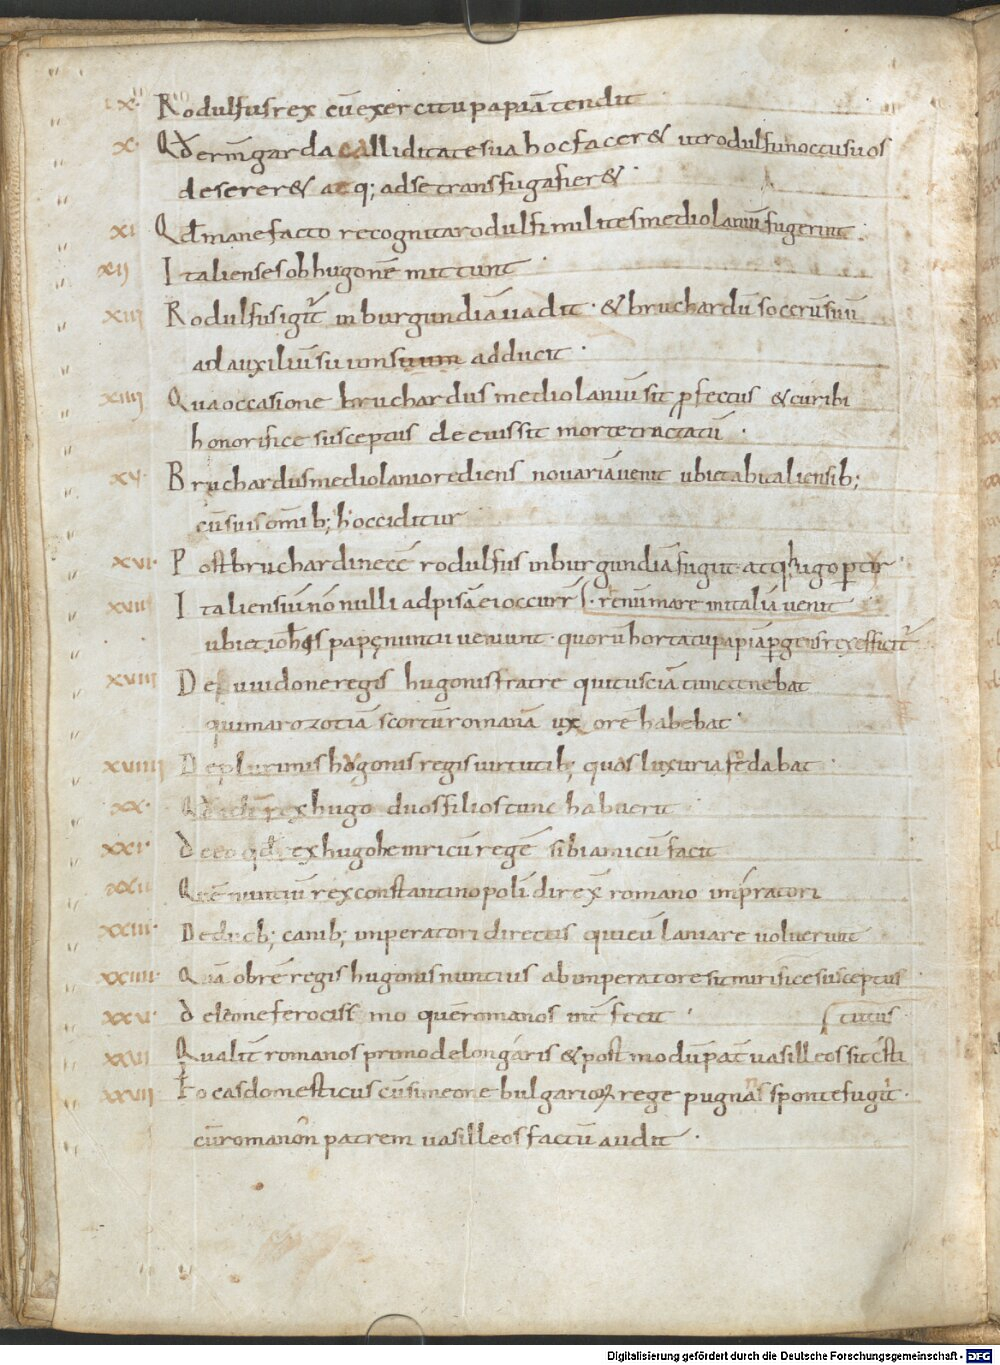 ıx· Rodulfus rex cū exercitu papiā tendit
x· Qd̄ ermḡarda calliditate sua hoc facer& ut rodulfū noctu suos
deserer& atq; ad se transfuga fier&·
xi Qd̄ mane facto re cognita rodulfi milites mediolaniū fugerint
xii Italienses ob hugonē mittunt·
xiii Rodulfus igit̄ in burgundiā uadit· & bruchardū socerū suū
ad auxiliū sui adducit·
xiiii Qua occasione bruchardus mediolaniū sit ꝓfectus & cur ibi
honorifice susceptus de euissit morte tractatū·
xv· Bruchardus mediolanio rediens nouariā uenit ubi et ab italiensib;
cū suis omīb; hocciditur
xvi· Post bruchardi necē rodulfus in burgundiā fugit· atq; hugo
xvii Italiensiū non nulli ad pisā ei occurr̄ mare in italiā uenit
ubi et ioh̄is papę nuntii ueniunt· quorū hortatu papiā ꝑgens rex efficit̄
xviii De uuidone regis hugonis fratre qui tusciā tunc tenebat
qui marozotiā scortū romanā uxorē habebat·
xviiii De plurimis hugonis regis uirtutib; quas luxuria fędabat·
xx· rex hugo duos filios tunc habuerit·
xxi· De eo qd̄ rex hugo heinricū regē sibi amicū facit
xxii Quē nuntiū rex constantinopolī direx̄ romano imꝑatori
xxiii· De duob; canib; imperatori directis qui eū laniare uoluerunt
xxiiii· Quā ob rē regis hugonis nuntius ab imperatore sit mirifice susceptus
xxv· De leone ferocissimo quē romanos inēfecit· titus
xxvi Qualit̄ romanos primo delongaris & postmodū pat̄ uasilleos sit c̄sti
xxvii Focas domesticus cū simeone bulgarioꝝ rege pugnans sponte fugit·
cū romanon patrem uasilleos factū audit·